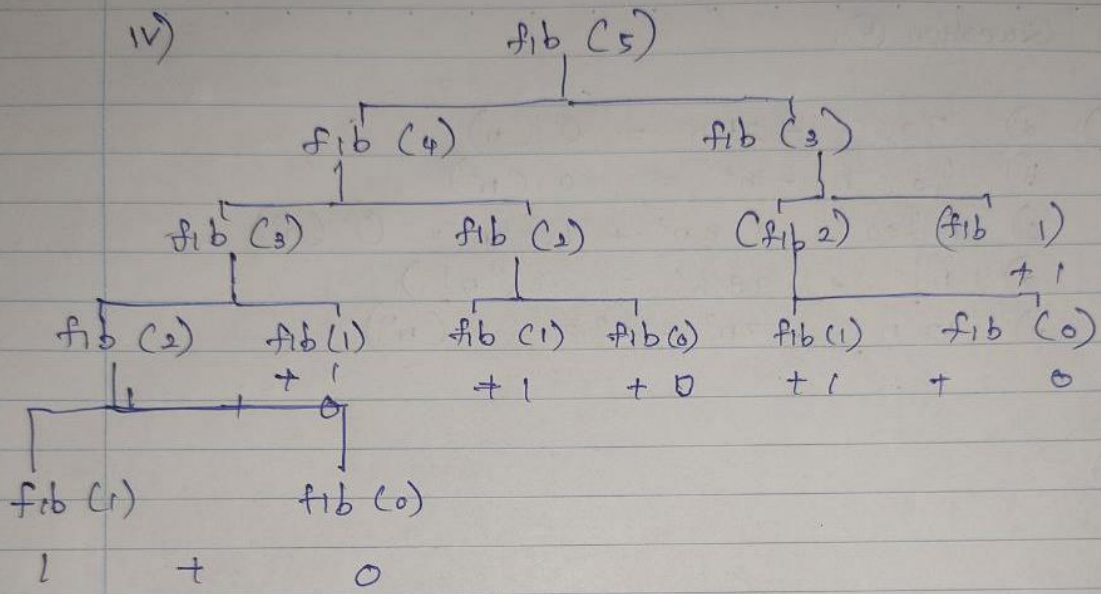 iv) fib (5)
fib (4) fib (3)
fib (3) fib (2) (fib 2) (fib 1)
+ 1
fib (2) fib (1) fib (1) fib (0) fib (1) fib (0)
+ 1 + 1 + 0 + 1 + 0
1 + 0
fib (1) fib (0)
1 + 0